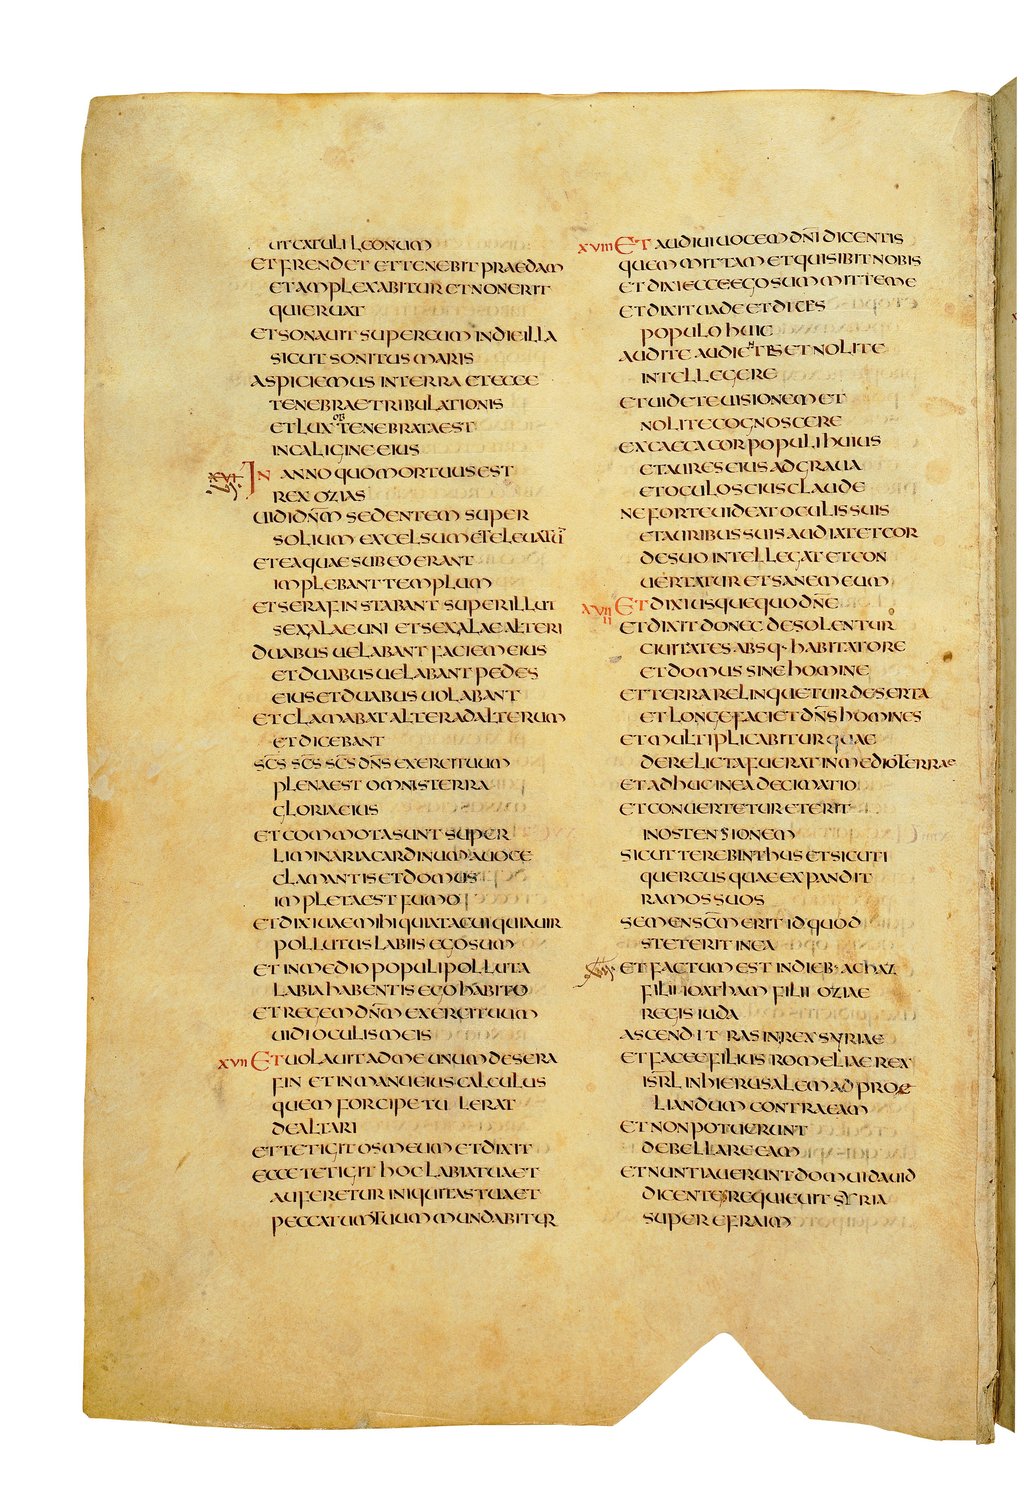 UT CATULI LEONUM
ET FRENDET ET TENEBIT PRAEDAM
ET AMPLEXABITUR ET NON ERIT
QUI ERUAT
ET SONAUIT SUPER EUM IN DIE ILLA
SICUT SONITUS MARIS
ASPICIEMUS IN TERRA ET ECCE
TENEBRAE TRIBULATIONIS
ET LUX OBTENEBRATA EST
IN CALIGINE EIUS
XVI IN ANNO QUO MORTUUS EST
REX OZIAS
UIDI DN̄M SEDENTEM SUPER
SOLIUM EXCELSUM ET ELEUATŪ
ET EA QUAE SUB EO ERANT
IMPLEBANT TEMPLUM
ET SERAFIN STABANT SUPER ILLUT
SEX ALAE UNI ET SEX ALAE ALTERI
DUABUS UELABANT FACIEM EIUS
ET DUABUS UELABANT PEDES
EIUS ET DUABUS UOLABANT
ET CLAMABAT ALTER AD ALTERUM
ET DICEBANT
SC̄S SC̄S SC̄S DN̄S EXERCITUUM
PLENA EST OMNIS TERRA
GLORIA EIUS
ET COMMOTA SUNT SUPER
LIMINARIA CARDINUM A UOCE
CLAMANTIS ET DOMUS
IMPLETA EST FUMO
ET DIXI UAE MIHI QUIA TACUI QUIA UIR
POLLUTUS LABIIS EGO SUM
ET IN MEDIO POPULI POLLUTA
LABIA HABENTIS EGO HABITO
ET REGEM DN̄M EXERCITUUM
UIDI OCULIS MEIS
XVII ET UOLAUIT AD ME UNUM DE SERA
FIN ET IN MANU EIUS CALCULUS
QUEM FORCIPE TULERAT
DE ALTARI
ET TETIGIT OS MEUM ET DIXIT
ECCE TETIGIT HOC LABIA TUA ET
AUFERETUR INIQUITAS TUA ET
PECCATUM TUUM MUNDABITUR
XVIII ET AUDIUI UOCEM DN̄I DICENTIS
QUEM MITTAM ET QUIS IBIT NOBIS
ET DIXI ECCE EGO SUM MITTE ME
ET DIXIT UADE ET DICES
POPULO HUIC
AUDITE AUDIENTES ET NOLITE
INTELLEGERE
ET UIDETE UISIONEM ET
NOLITE COGNOSCERE
EXCAECA COR POPULI HUIUS
ET AURES EIUS ADGRAUA
ET OCULOS EIUS CLAUDE
NE FORTE UIDEAT OCULIS SUIS
ET AURIBUS SUIS AUDIAT ET COR
DE SUO INTELLEGAT ET CON
UERTATUR ET SANEM EUM
XVIIII ET DIXI USQUEQUO DN̄E
ET DIXIT DONEC DESOLENTUR
CIUITATES ABSQ· HABITATORE
ET DOMUS SINE HOMINE
ET TERRA RELINQUETUR DESERTA
ET LONGE FACIET DN̄S HOMINES
ET MULTIPLICABITUR QUAE
DERELICTA FUERAT IN MEDIO TERRAE
ET ADHUC IN EA DECIMATIO
ET CONUERTETUR ET ERIT
IN OSTENSIONEM
SICUT TEREBINTHUS ET SICUTI
QUERCUS QUAE EXPANDIT
RAMOS SUOS
SEMEN SC̄M ERIT ID QUOD
STETERIT IN EA
ET FACTUM EST IN DIEB· ACHAZ
FILII IOATHAM FILII OZIAE
REGIS IUDA
ASCENDIT RASIN REX SYRIAE
ET FACEE FILIUS ROMELIAE REX
ISR̄L IN HIERUSALEM AD PROE
LIANDUM CONTRA EAM
ET NON POTUERUNT
DEBELLARE EAM
ET NUNTIAUERUNT DOMUI DAUID
DICENTES REQUIEUIT SYRIA
SUPER EFRAIM